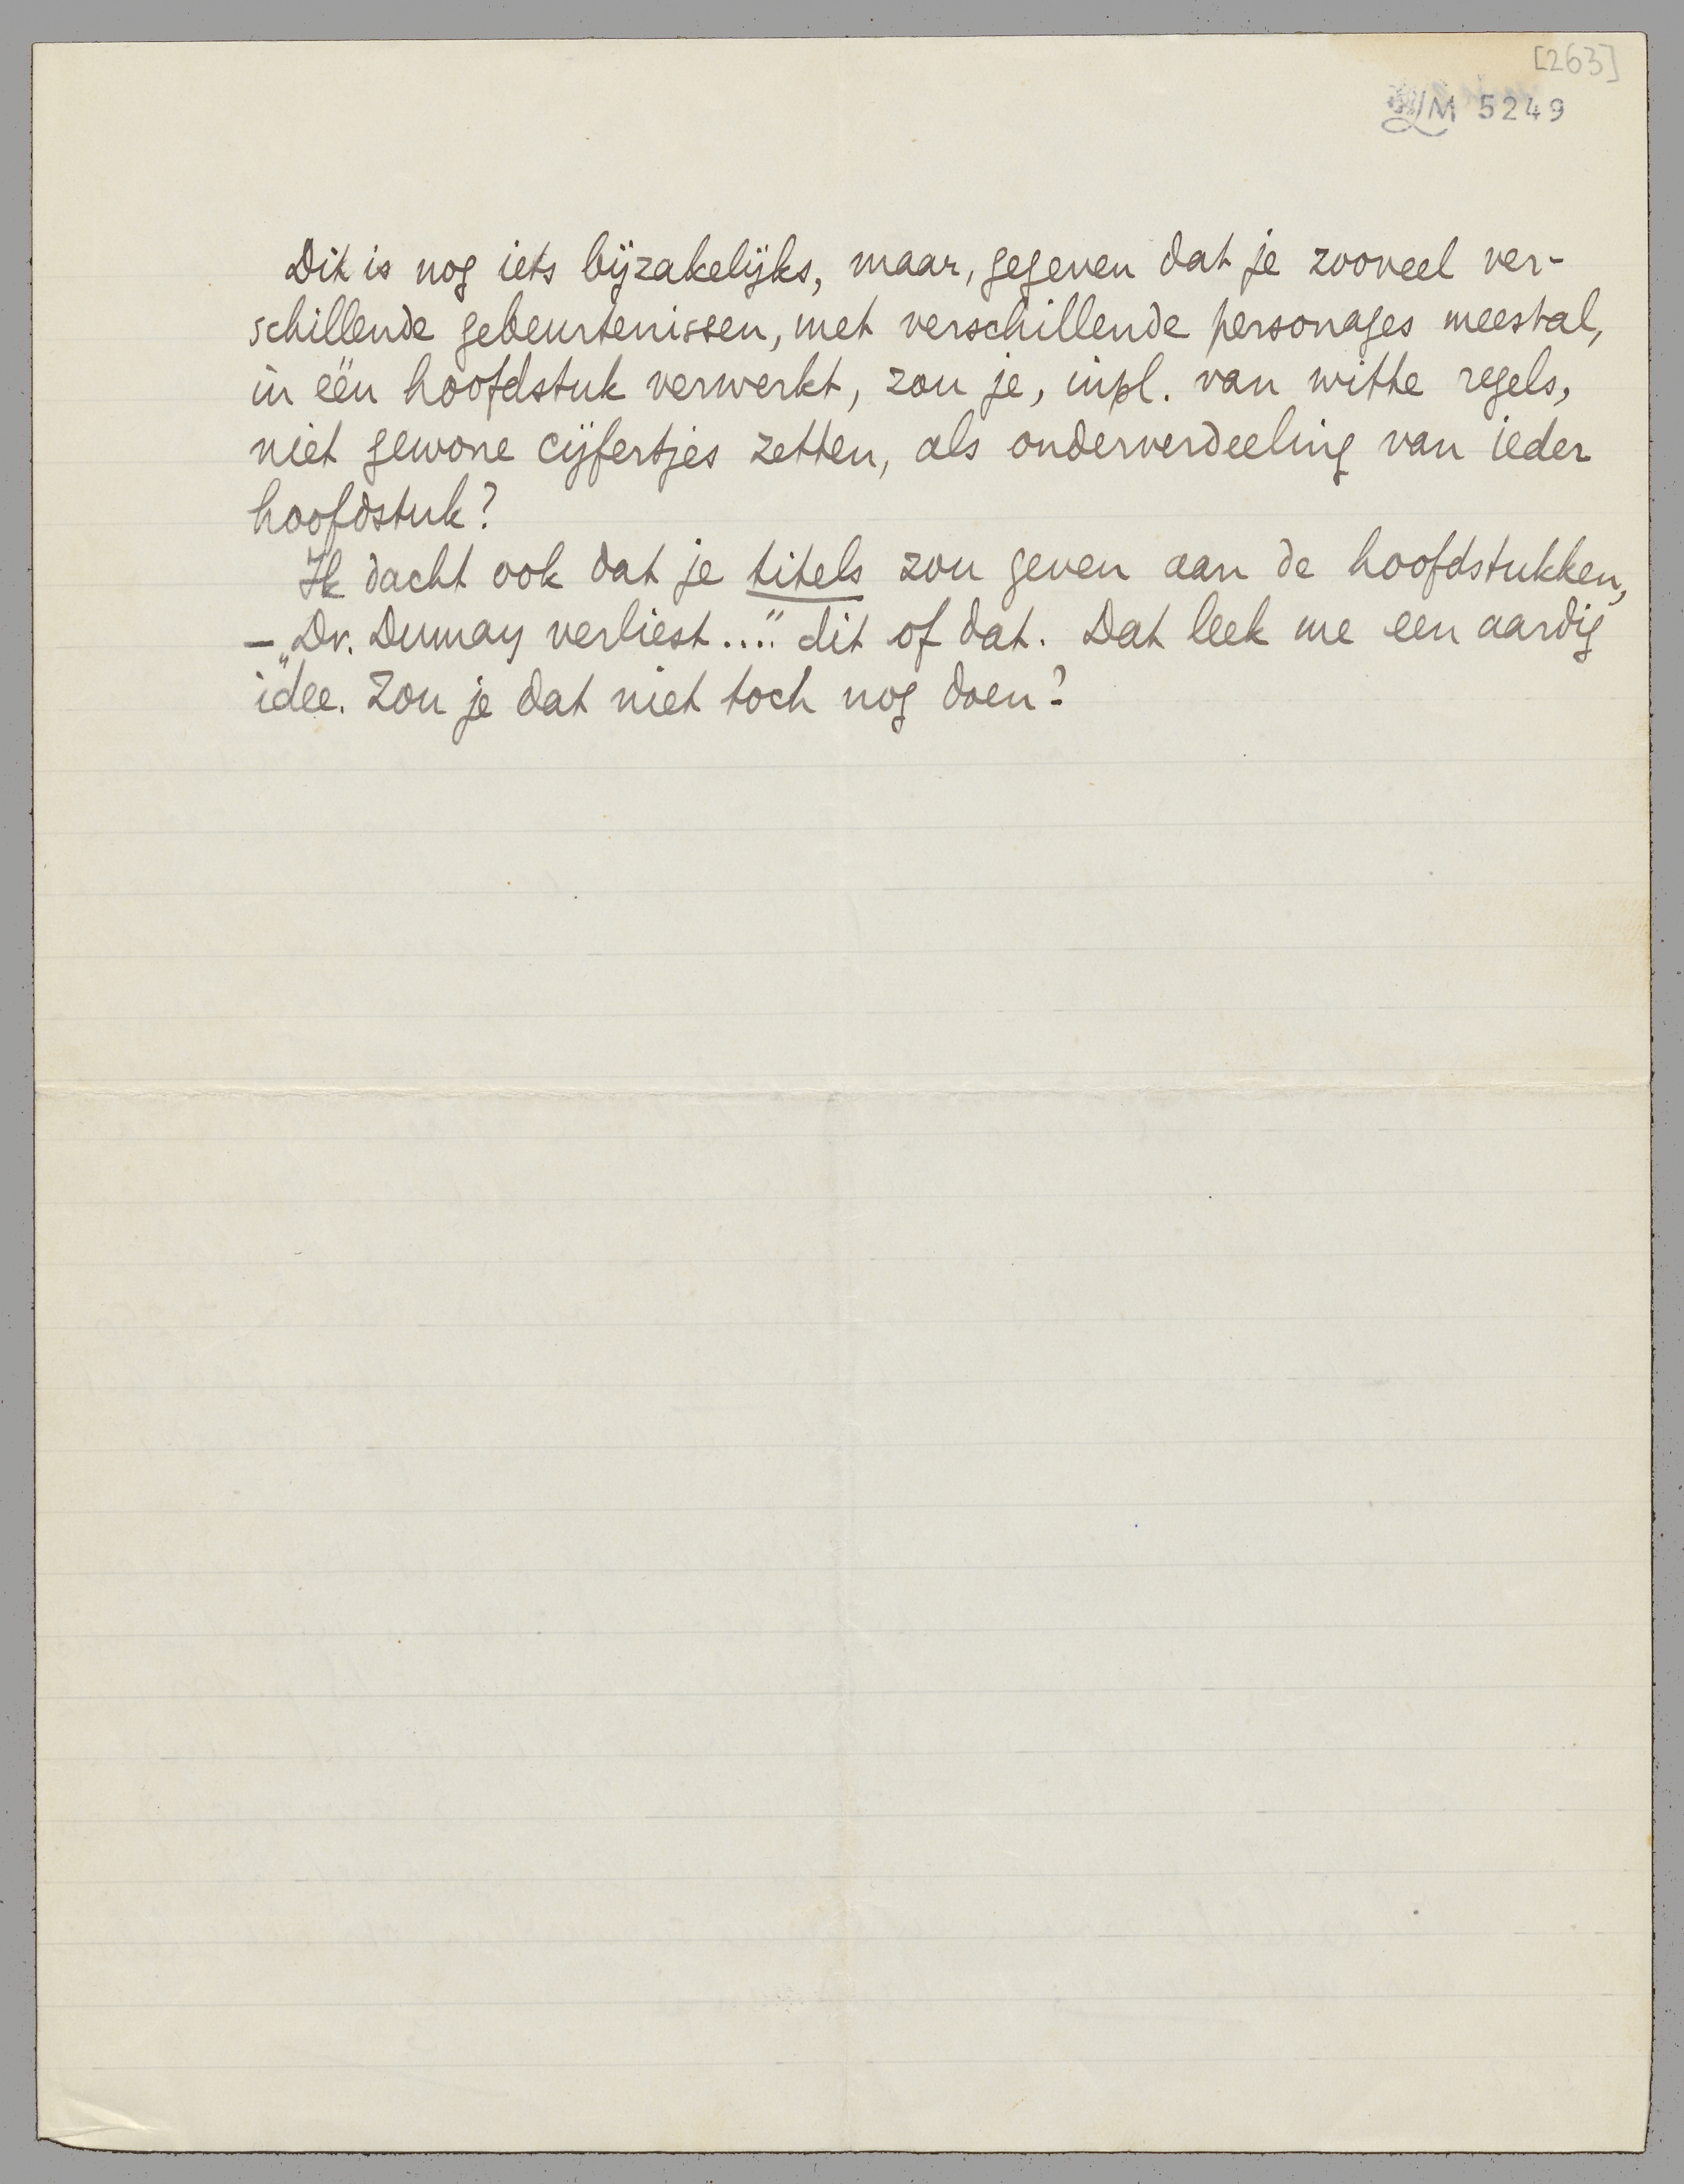 [263]
LM 5249
Dit is nog iets bijzakelijks, maar, gegeven dat je zooveel ver-
schillende gebeurtenissen, met verschillende personages meestal,
in één hoofdstuk verwerkt, zou je, inpl. van witte regels,
niet gewone cijfertjes zetten, als onderverdeeling van ieder
hoofdstuk?
Ik dacht ook dat je titels zou geven aan de hoofdstukken,
– „Dr. Dumay verliest...." dit of dat. Dat leek me een aardig
idee. Zou je dat niet toch nog doen?